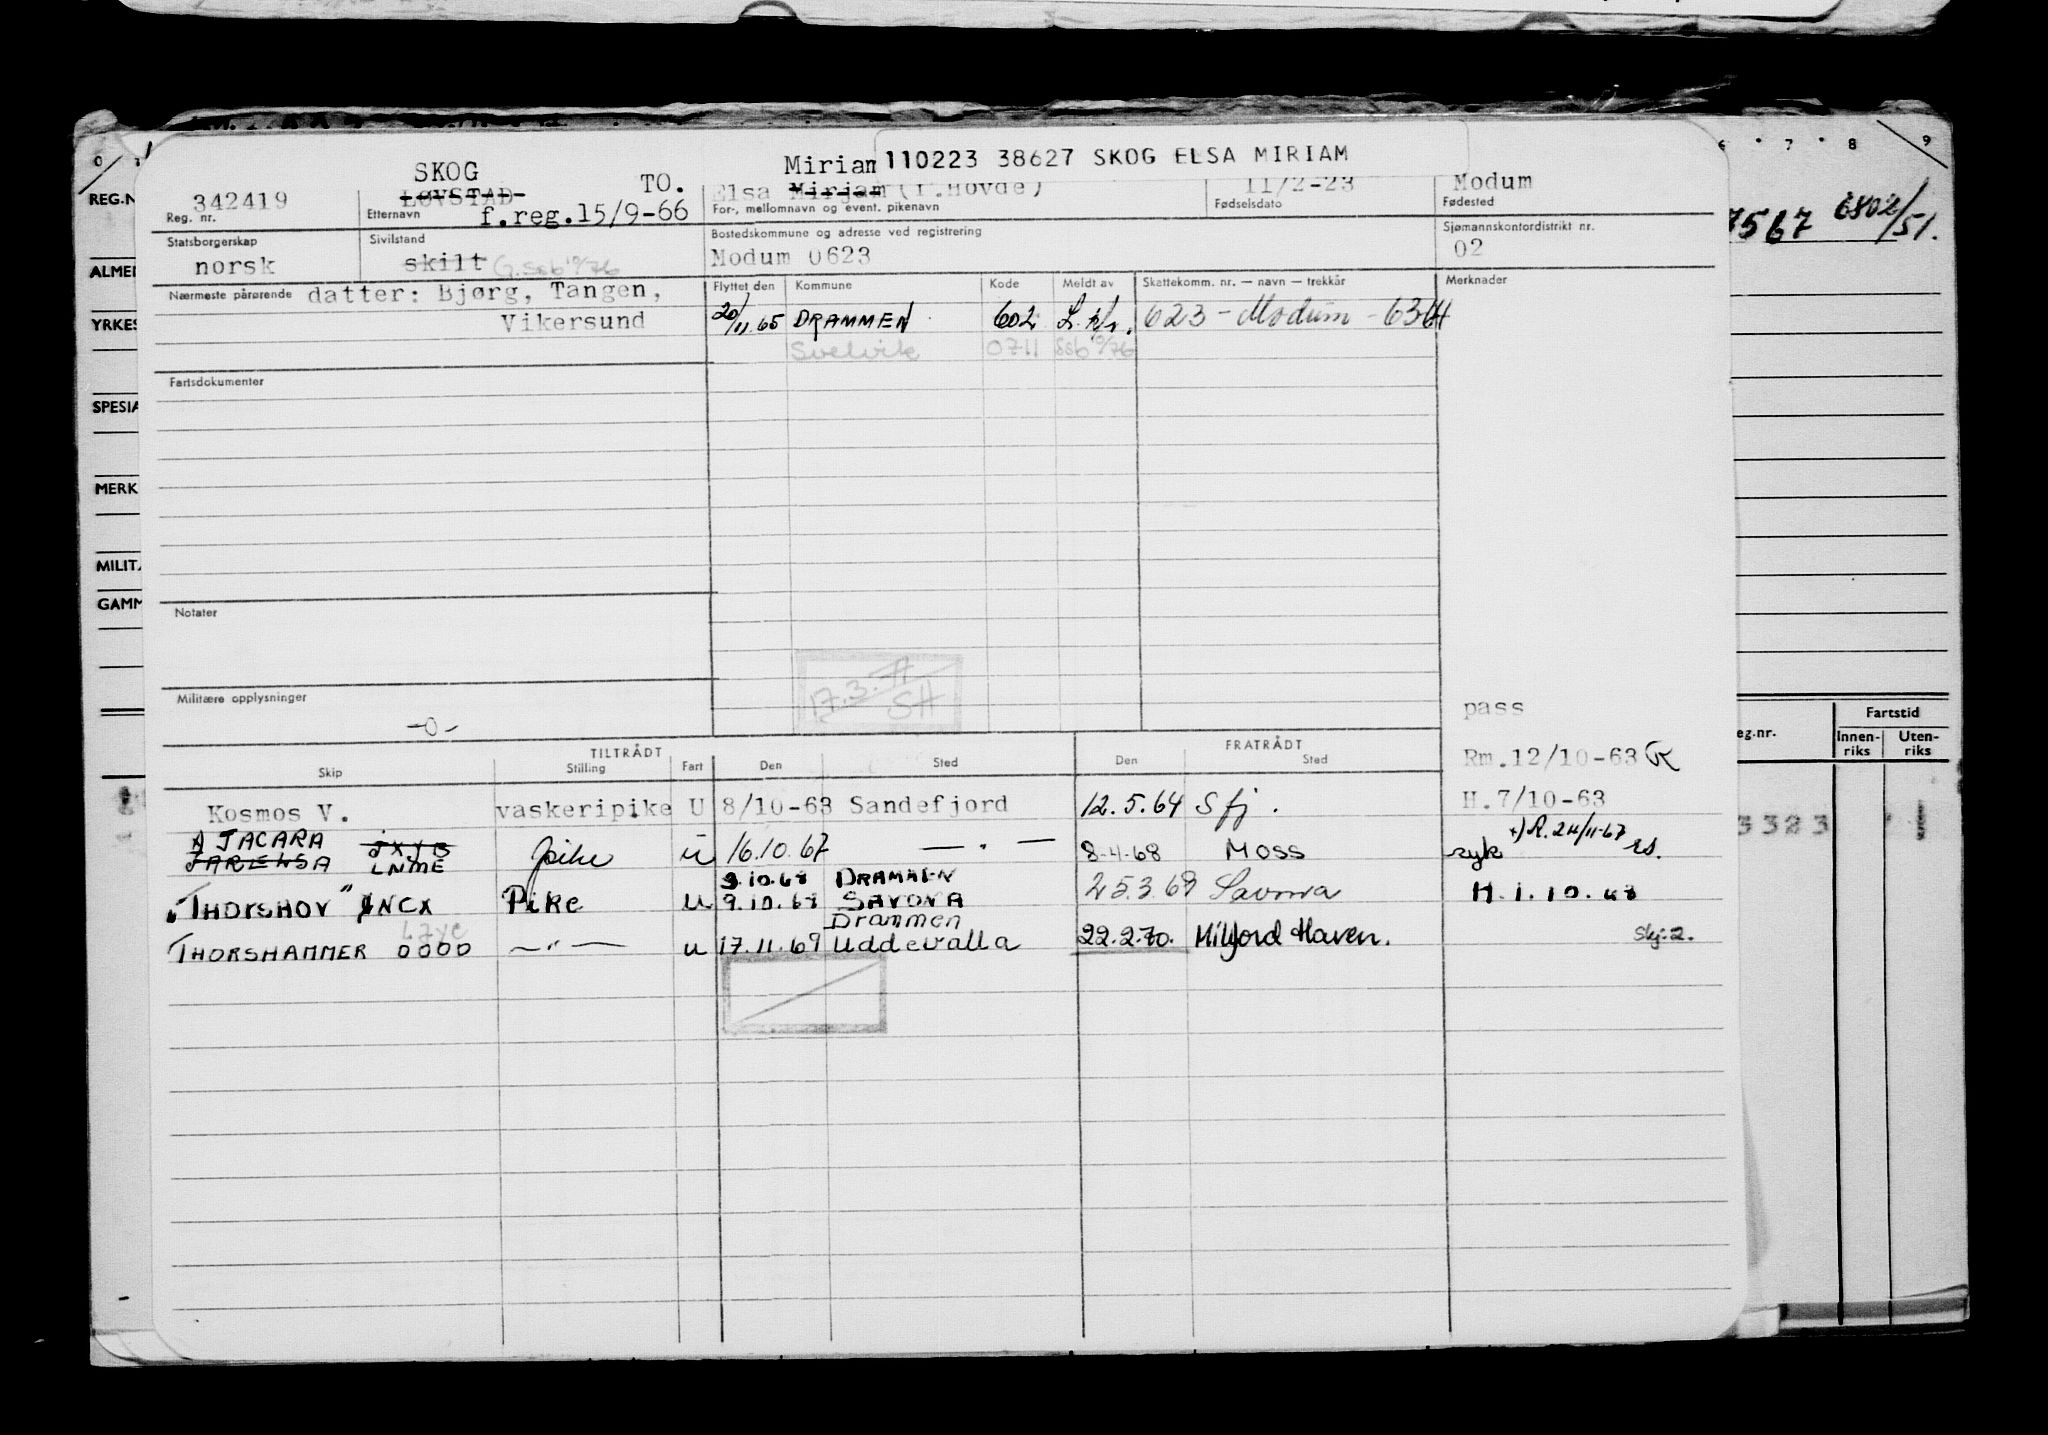 110223 38627 SKOG ELSA MIRIAM
SKOG TO. Miriam
342419 LØVSTAD Elsa Mirjam (f.Hovde) 11/2-23 Modum
Reg. nr. Etternavn f.reg.15/9-66 For-, mellomnavn og event. pikenavn Fødselsdato Fødested
Statsborgerskap Sivilstand Bostedskommune og adresse ved registrering Sjømannskontordistrikt nr.
norsk skilt G.ssb 9/76 Modum 0623 02
Nærmeste pårørende datter: Bjørg, Tangen, Flyttet den Kommune Kode Meldt av Skattekomm. nr. — navn — trekkår Merknader
Vikersund 20/11 65 DRAMMEN 602 623 - Modum - 63
Svelvik 0711 Ssb 9/76
Fartsdokumenter
Notater
17.3.71 SH
Militære opplysninger
-0-
pass
TILTRÅDT FRATRÅDT
Skip Stilling Fart Den Sted Den Sted
Rm.12/10-63
Kosmos V. vaskeripike U 8/10-63 Sandefjord 12.5.64 Sfj. H.7/10-63
JACARA JXYB
LNME pike u 16.10.67 — " — 8-4-68 MOSS syk +) R. 24/11-67 rs.
9.10.68 DRAMMEN
"THORSHOV" JNCX Pike u 9.10.68 SAVONA 25.3.69 Savona H.1.10.68
LZYC Drammen
THORSHAMMER 0000 — " — u 17.11.69 Uddevalla 22.2.70. Milford Haven. Skj:2.
0 7 8 9
REG.N
7567 6802/51.
ALMEN
YRKES
SPESIA
MERK
MILITÆ
GAMM
eg.nr. Fartstid
Innen-riks Uten-riks
3323